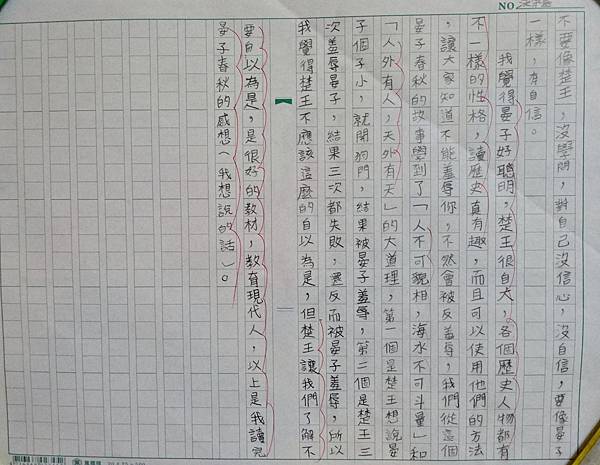 NO.
不要像楚王，沒學問，對自己沒信心，沒自信，要像晏子
一樣，有自信。
我覺得晏子好聰明，楚王很自大，各個歷史人物都有
不一樣的性格，讀歷史真有趣，而且可以使用他們的方法
，讓大家知道不能羞辱你，不然會被反羞辱，我們從這個
晏子春秋的故事學到了「人不可貌相，海水不可斗量」和
「人外有人，天外有天」的大道理，第一個是楚王想說晏
子個子小，就開狗門，結果被晏子羞辱，第二個是楚王三
次羞辱晏子，結果三次都失敗，還反而被晏子羞辱，所以
我覺得楚王不應該這麼的自以為是，但楚王讓我們了解不
要自以為是，是很好的教材，教育現代人，以上是我讀完
晏子春秋的感想（我想說的話）。